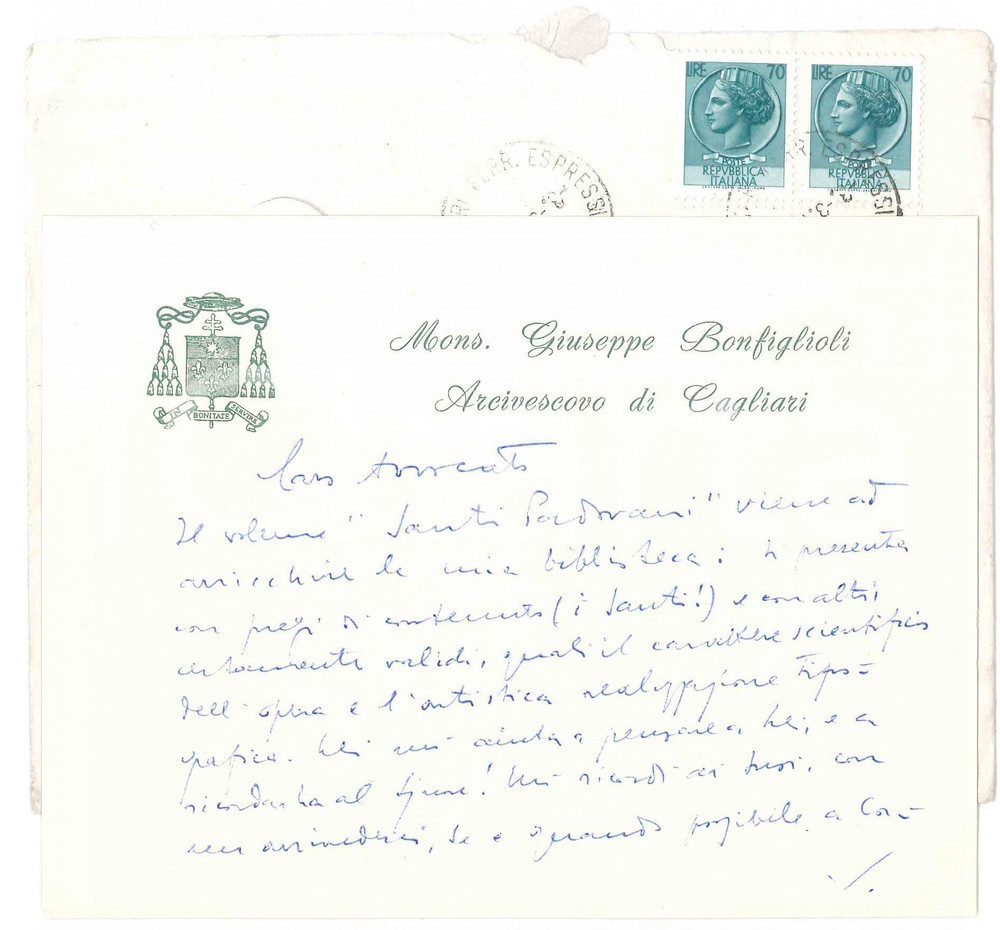 LIRE 70 LIRE 70
POSTE POSTE
REPVBBLICA ITALIANA REPVBBLICA ITALIANA
FERR. ESPRESSI
R. ESPRESSI
Mons. Giuseppe Bonfiglioli
Arcivescovo di Cagliari
IN BONITATE SERVIRE
Caro Avvocato
Il volume "Santi Padovani" viene ad
arricchire la mia biblioteca: si presenta
con pregi di contenuto (i Santi!) e con altri
certamente validi, quali il carattere scientifico
dell'opera e l'artistica realizzazione tipo=
grafica. Lei mi aiuta a pensare a Lei, e a
ricordarla al Signore! Mi ricordi ai suoi, con
un arrivederci, se e quando possibile, a Cor=
./.